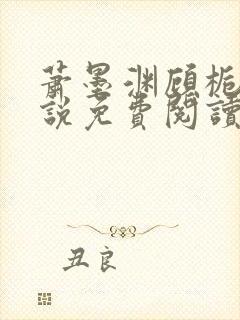 萧墨渊顾栀
說免費閱讀
丑良